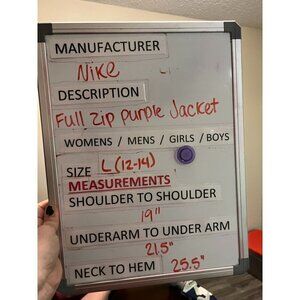 MANUFACTURER
Nike
DESCRIPTION
Full Zip Purple Jacket
WOMENS / MENS / GIRLS / BOYS
SIZE L (12-14)
MEASUREMENTS
SHOULDER TO SHOULDER
19"
UNDERARM TO UNDER ARM
21.5"
NECK TO HEM 25.5"